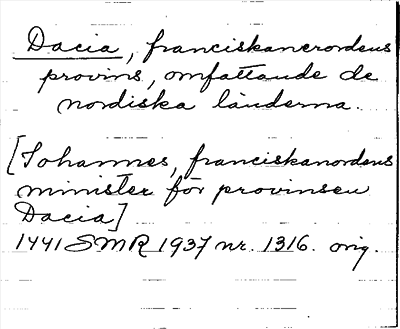 Dacia, franciskanerordens
provins, omfattande de
nordiska länderna.
[Johannes, franciskanordens
minister för provinsen
Dacia]
1441 SMR 1937 nr. 1316. orig.